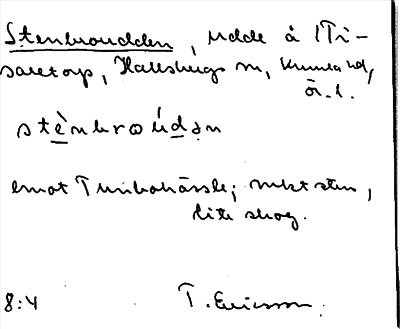 Stenbroudden, udde å lTi-
saretorp, Hallsbergs sn, Kumla hd,
ör. l.
stènbroúdan
emot Tunbohässle; mkt sten,
lite skog.
8:4 T. Ericsson.